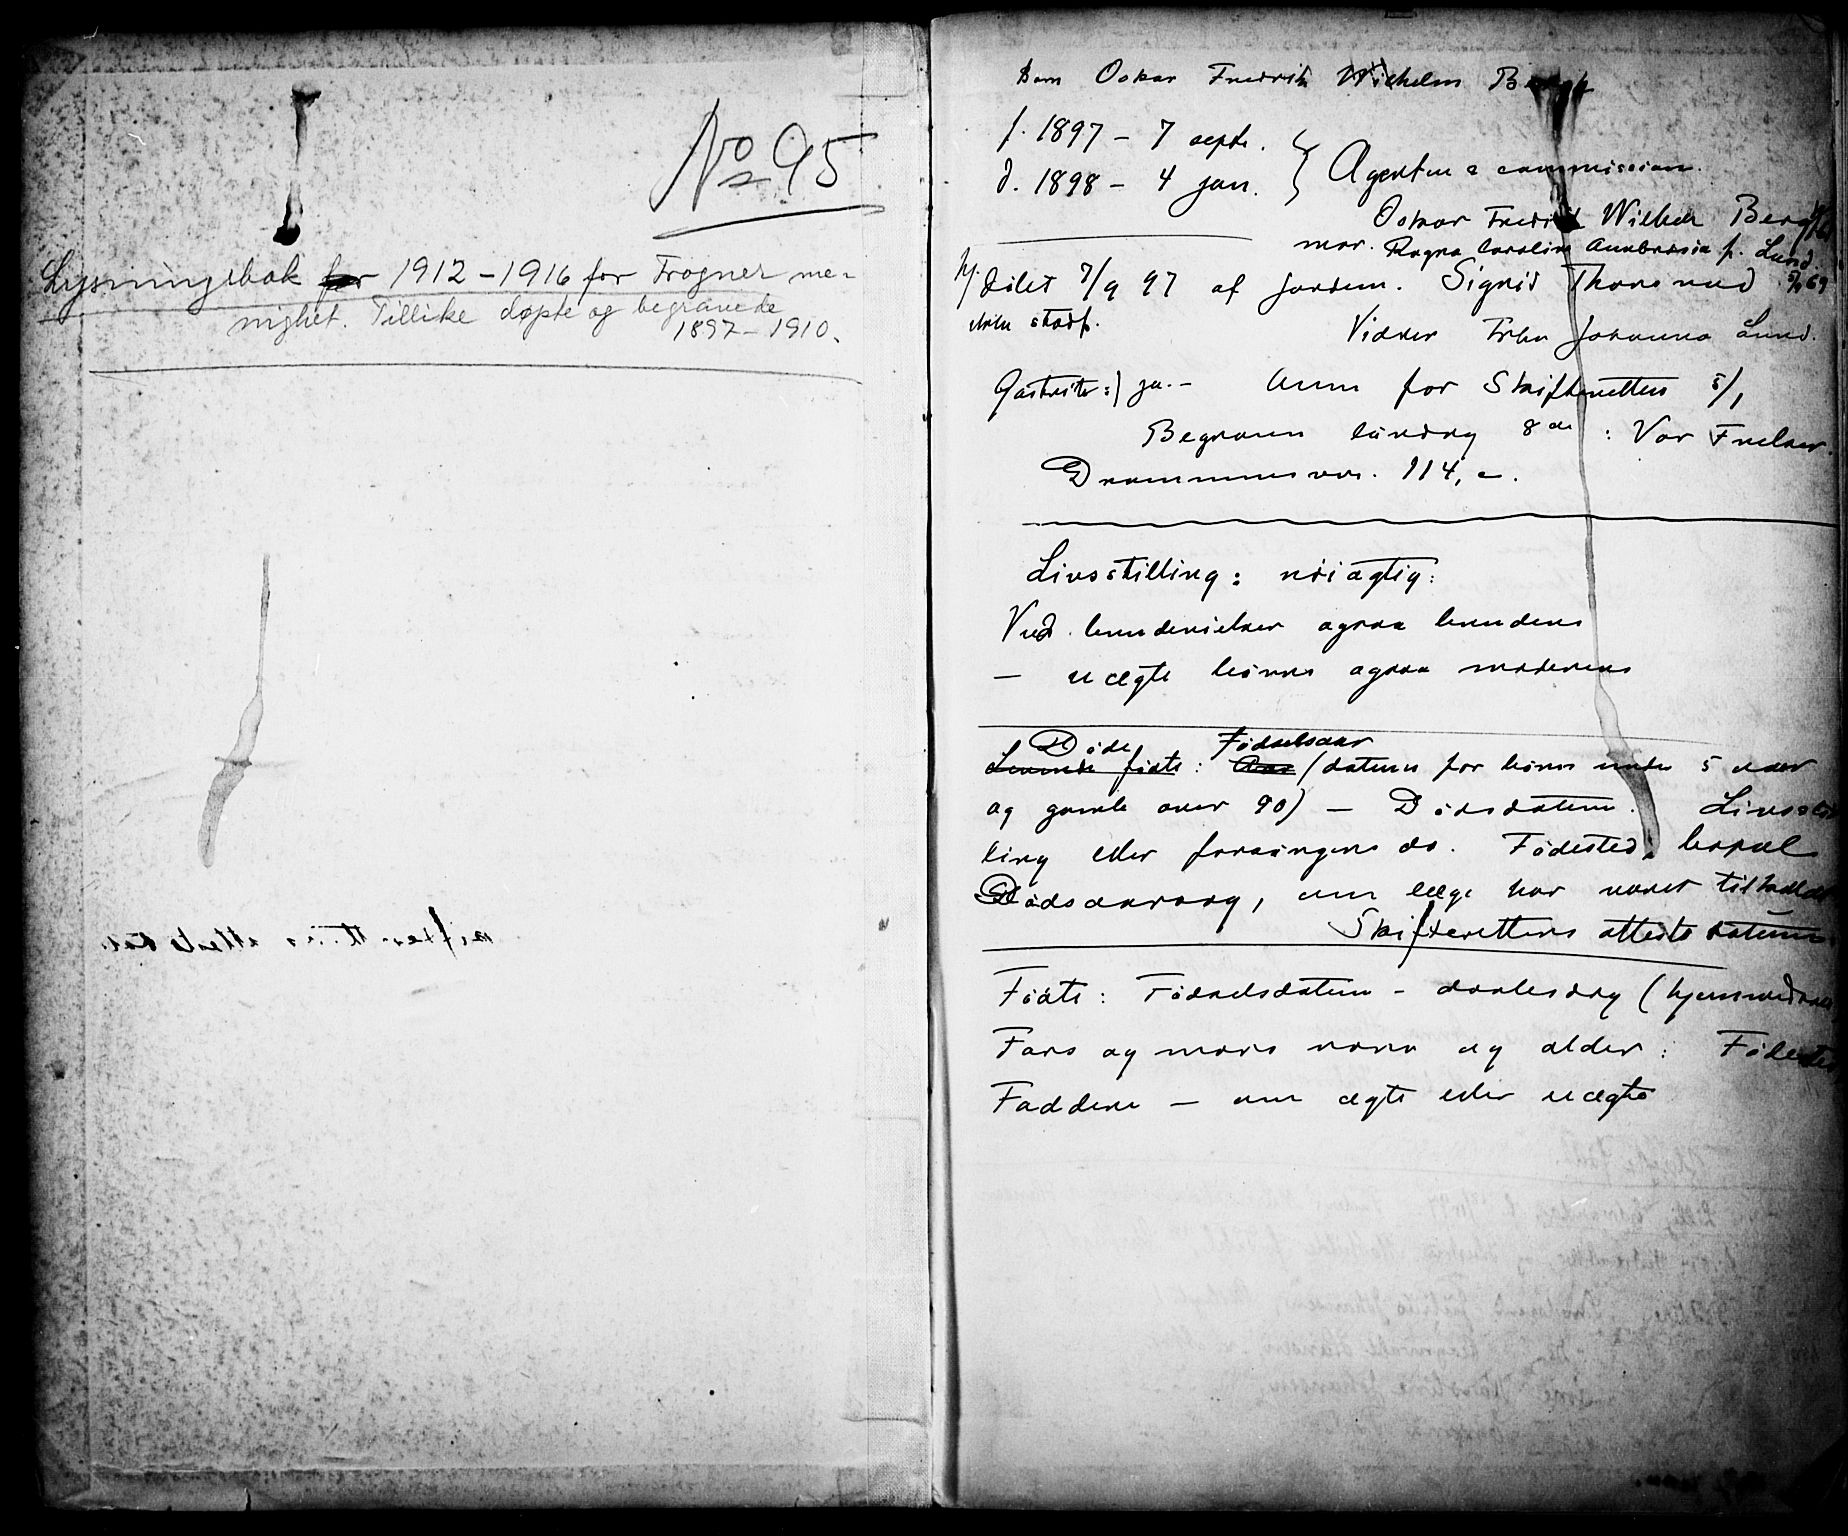 No 95
Lysningsbok for 1912-1916 for Frogner me-
nighet. Tillike døpte og begravede
1897-1910.
Barn Oskar Fredrik Wilhelm Bergh
f. 1897 - 7 septr.
d. 1898 - 4 jan. } Agentur & commission.
Oskar Fredrik Wilhelm Bergh
mor. Ragna Caroline f. Lund
hj. døbt 7/9 97 af jordem. Sigrid Thorsrud
ikke stadf. Vidner Frøken Johanna Lund.
Gastrite :/ ja. - Anm for Skifteretten 5/1
Begraves lørdag 8de : Vor Frelser.
Drammensvei. 114, c.
Livsstilling: nöiagtig:
Ved hustruer
- uægte börns ogsaa moderens
Døde Fødselsaar
födte: Aar (datum for börn under 5 aar
og gamle over 90) - Dödsdatum. Livsstil
ling eller forsörgers do. Födested, bopæl
Dödsaarsag, om læge har været tilkaldt
Skifterettens attests datum
Födte: Födselsdatum - daabsdag (hjemmedaab
Fars og mors navn og alder: Födested
Faddere - om ægte eller uægte